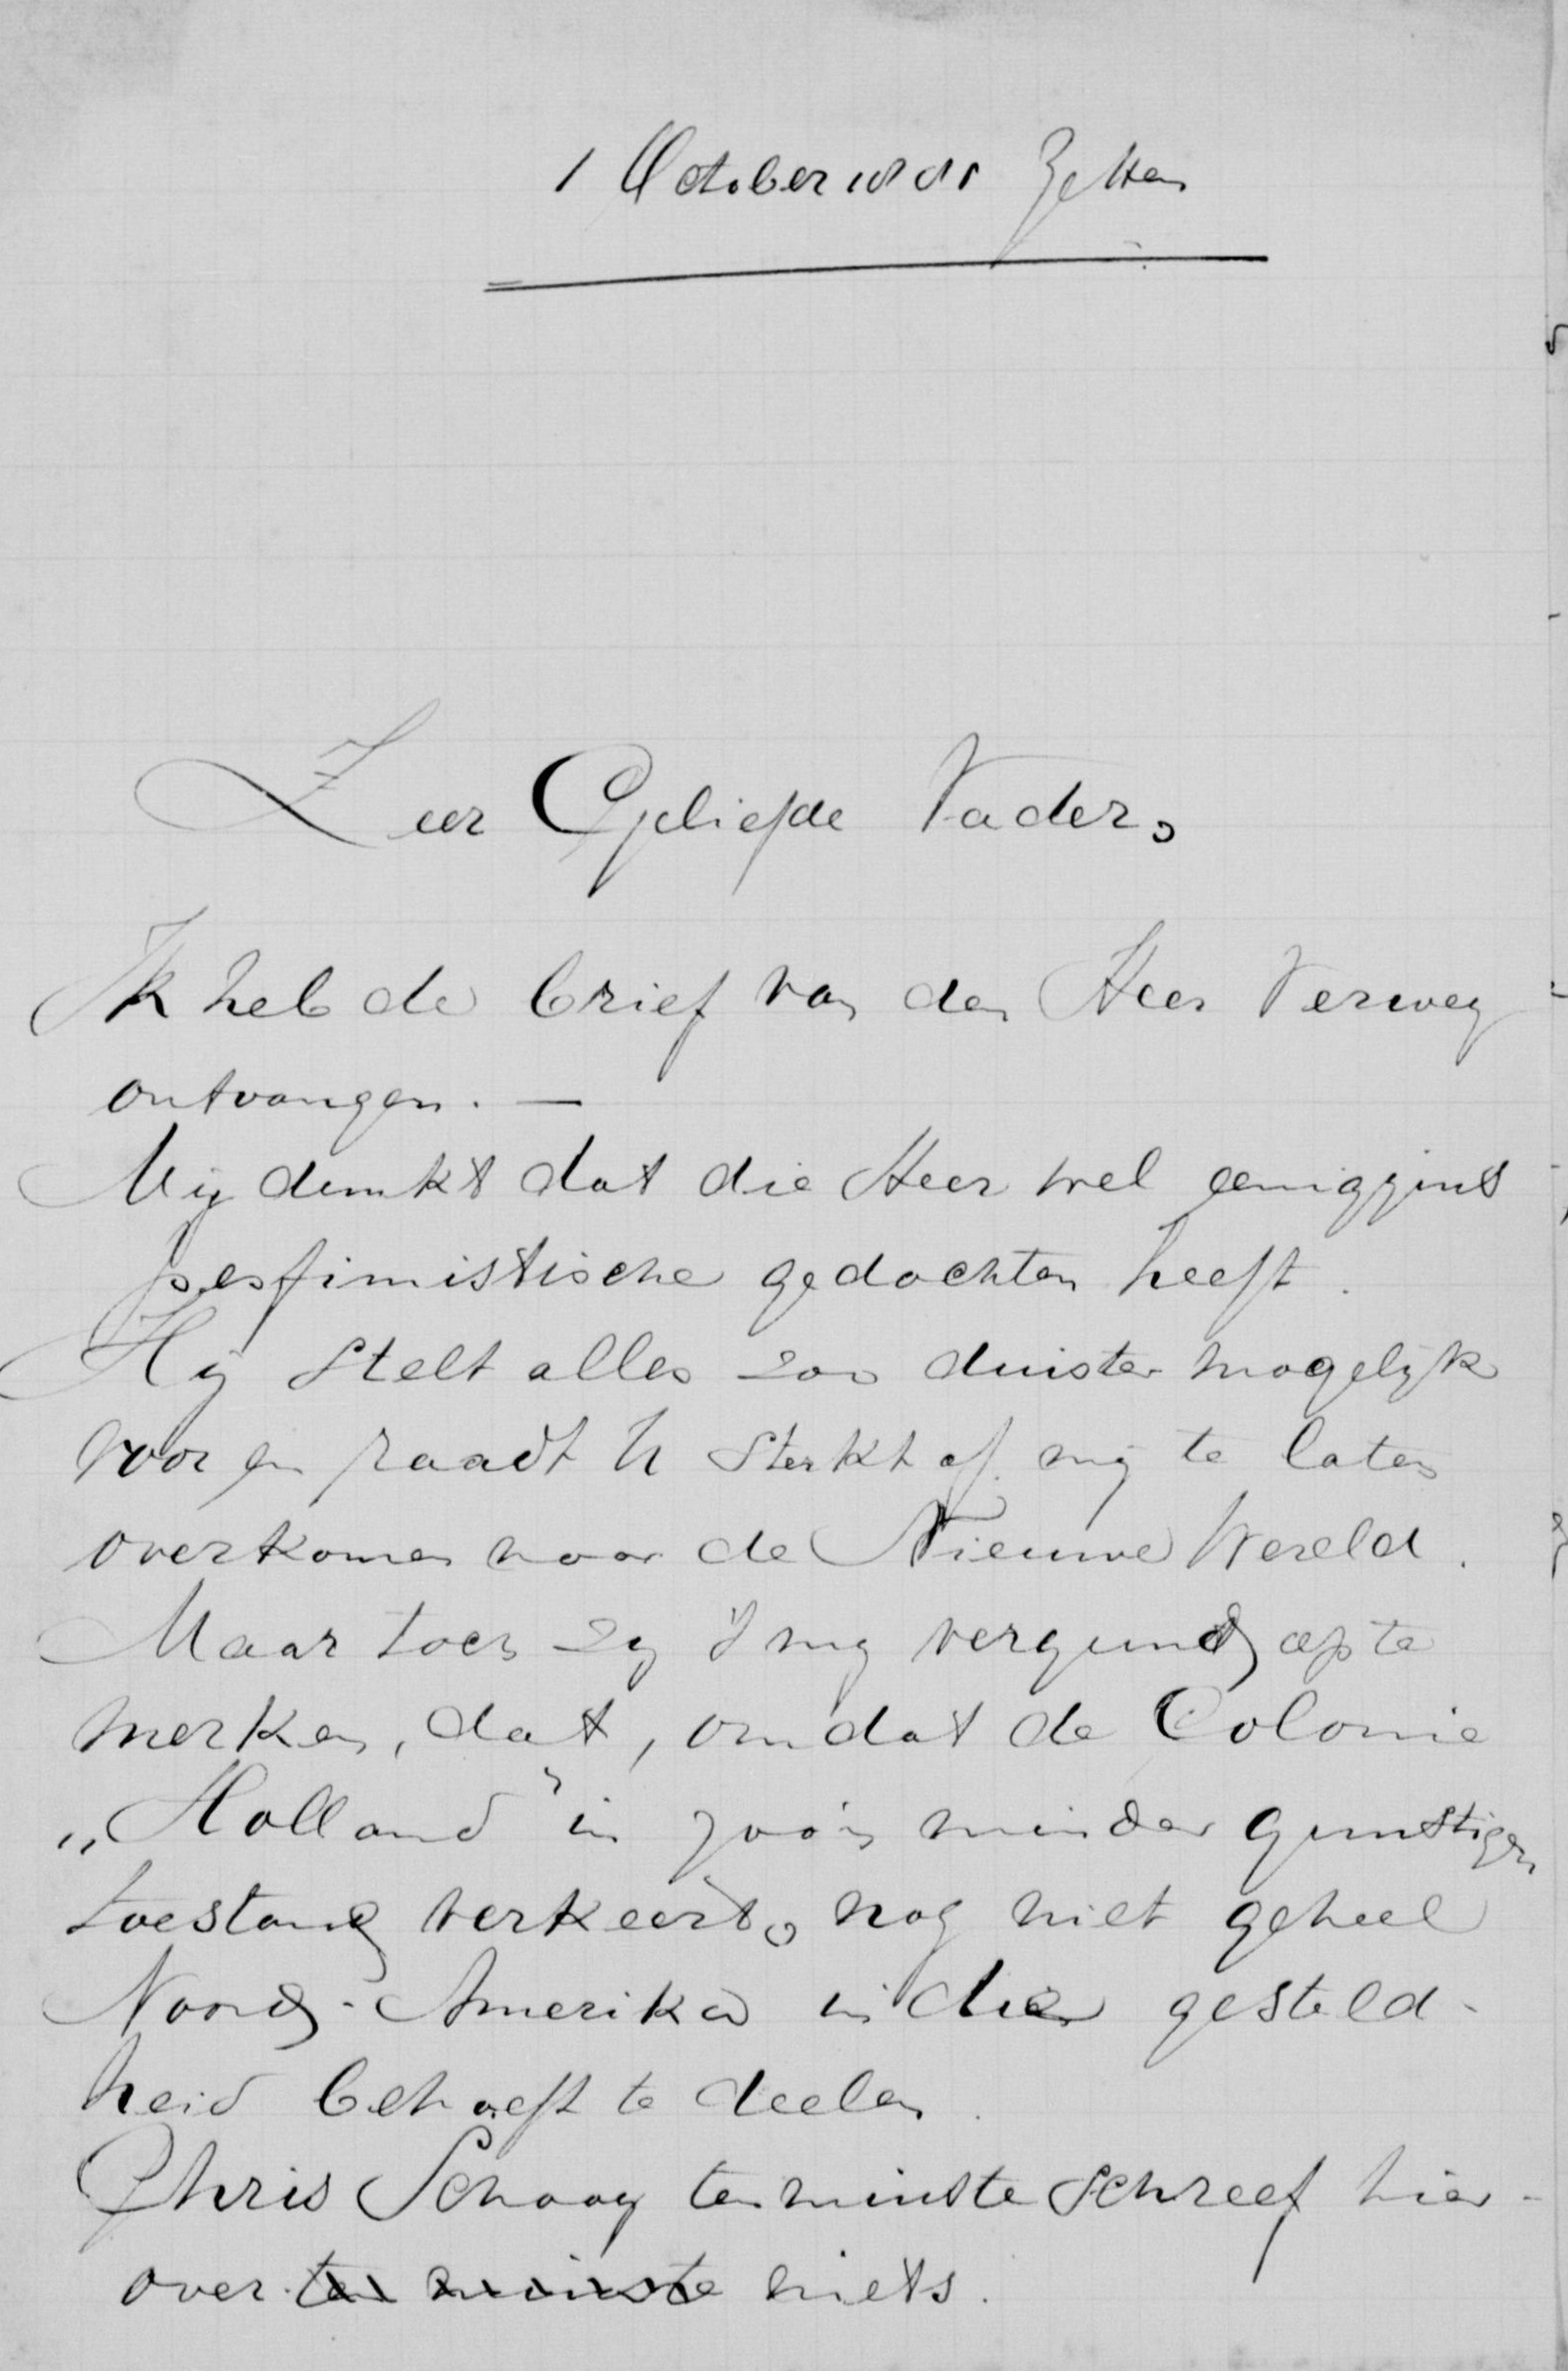 1 October 1881 Zetten
Zeer Geliefde Vader,
Ik heb de brief van den Heer Verwey
ontvangen. —
Mij dunkt dat die Heer wel eeniggins
pessimistische gedachten heeft.
Hij stelt alles zoo duister mogelijk
voor en raadt U sterkt af mij te laten
overkomen naar de Nieuwe Wereld.
Maar toch zij 't mij vergund op te
merken, dat, omdat de Colonie
„Holland” in zoo'n minder gunstigen
toestand verkeert, nog niet geheel
Noord-Amerika in die gesteld-
heid behoeft te deelen.
Chris Schaay ten minste schreef hier-
over ten minste niets.